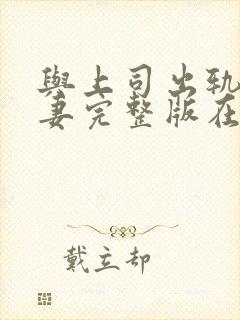 與上司出軌
妻完整版在
戴立却